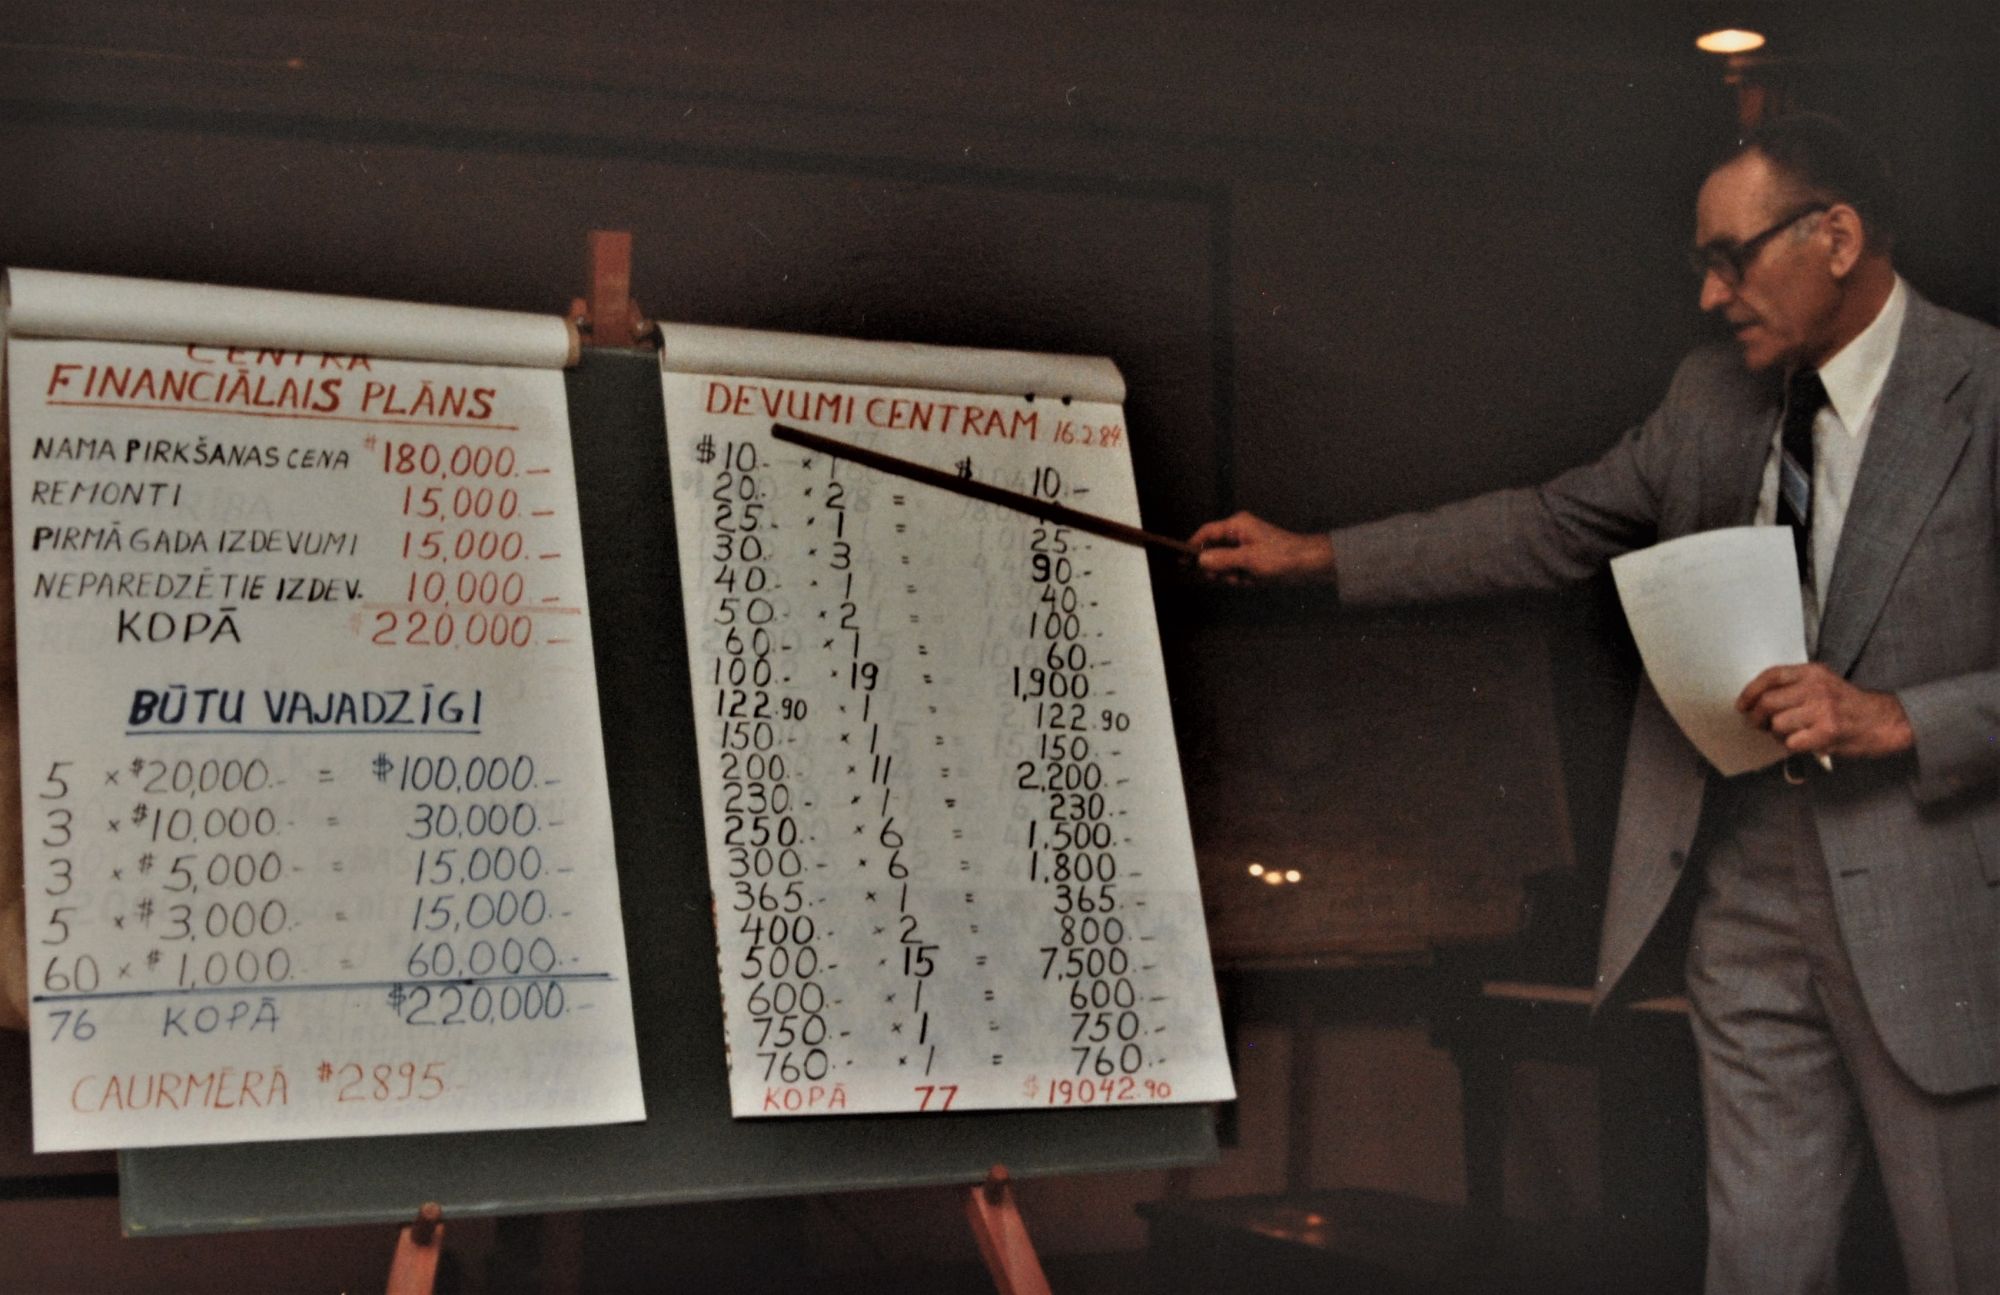 CENTRA
FINANCIĀLAIS PLĀNS
NAMA PIRKŠANAS CENA $180,000.–
REMONTI 15,000.–
PIRMĀ GADA IZDEVUMI 15,000.–
NEPAREDZĒTIE IZDEV. 10,000.–
KOPĀ $220,000.–
BŪTU VAJADZĪGI
5 × $20,000.– = $100,000.–
3 × $10,000.– = 30,000.–
3 × $5,000.– = 15,000.–
5 × $3,000.– = 15,000.–
60 × $1,000.– = 60,000.–
76 KOPĀ $220,000.–
CAURMĒRĀ $2895.–
DEVUMI CENTRAM 16.2.84.
$10.– × 1 $ 10.–
20.– × 2 =
25.– × 1 = 25.–
30.– × 3 = 90.–
40.– × 1 40.–
50.– × 2 100.–
60.– × 1 = 60.–
100.– × 19 = 1,900.–
122.90 × 1 = 122.90
150.– × 1 = 150.–
200.– × 11 = 2,200.–
230.– × 1 = 230.–
250.– × 6 = 1,500.–
300.– × 6 = 1,800.–
365.– × 1 = 365.–
400.– × 2 = 800.–
500.– × 15 = 7,500.–
600.– × 1 = 600.–
750.– × 1 = 750.–
760.– × 1 = 760.–
KOPĀ 77 $19042.90